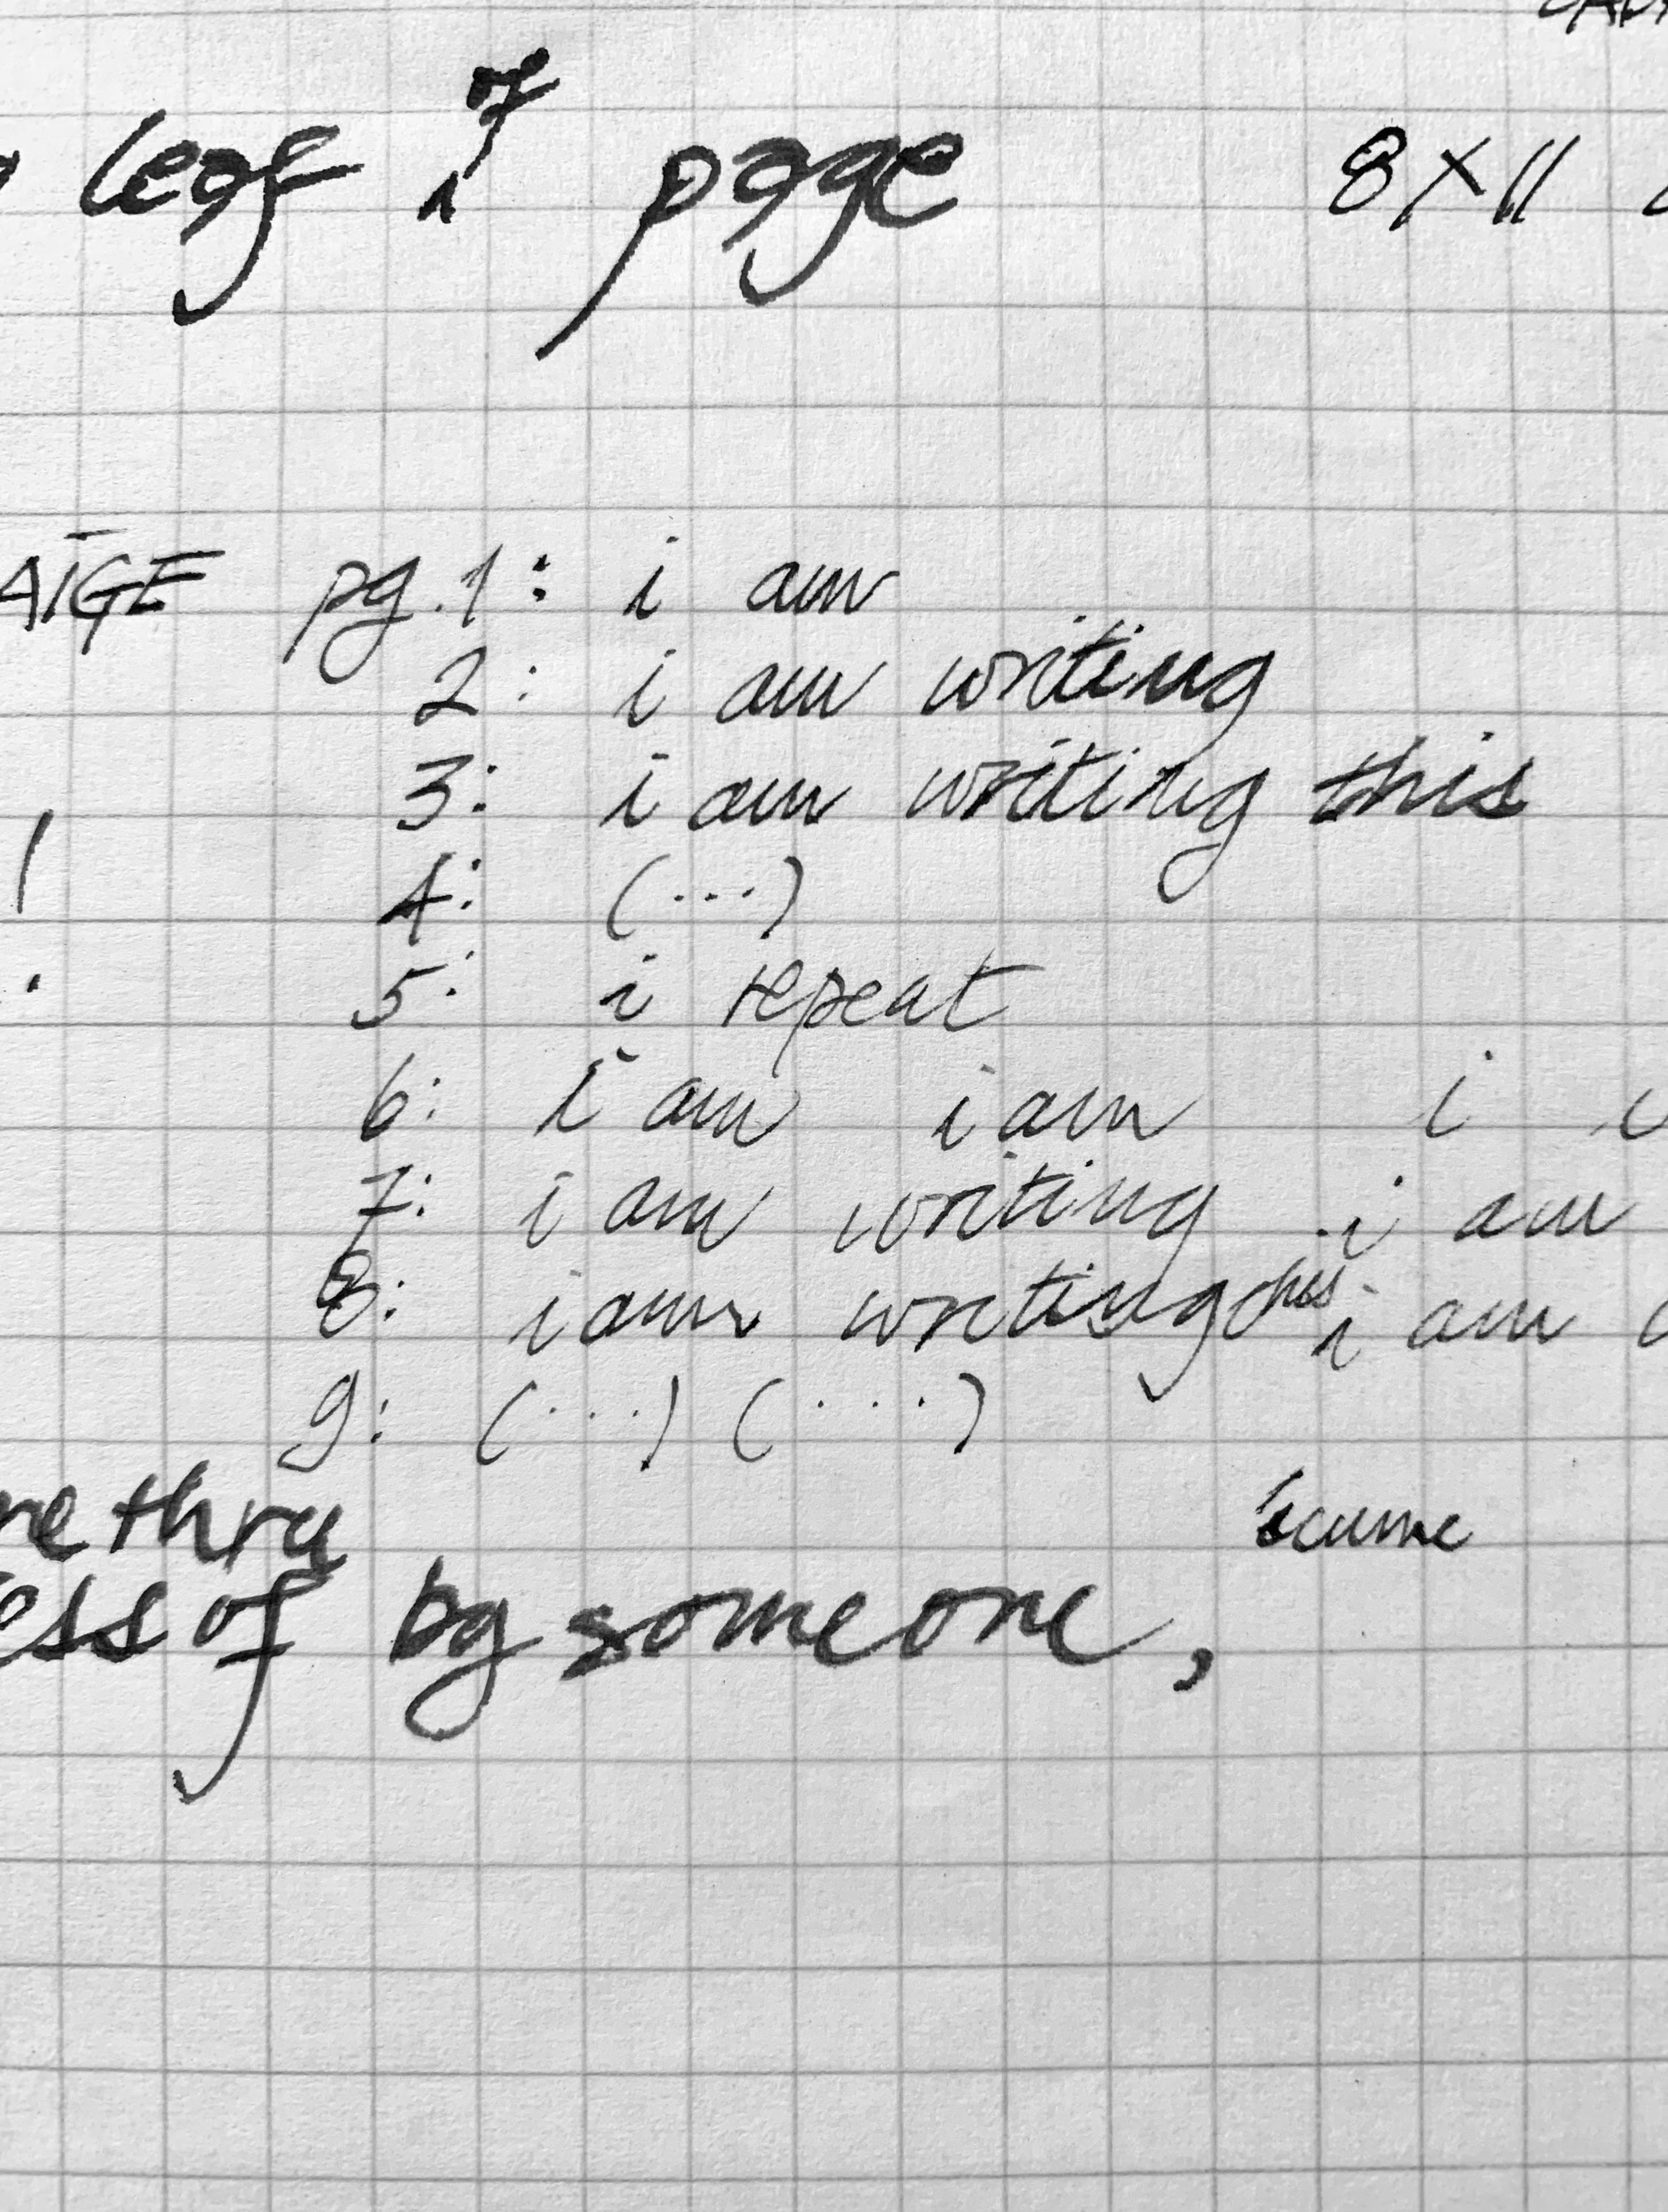 leaf i of page 8 X 11
AIGE pg. 1: i am
2: i am writing
3: i am writing this
4: (...)
5: i repeat
6: i am i am i
7: i am writing i am
8: i am writing this i am
9: (...) (...)
thru
ess of by someone,